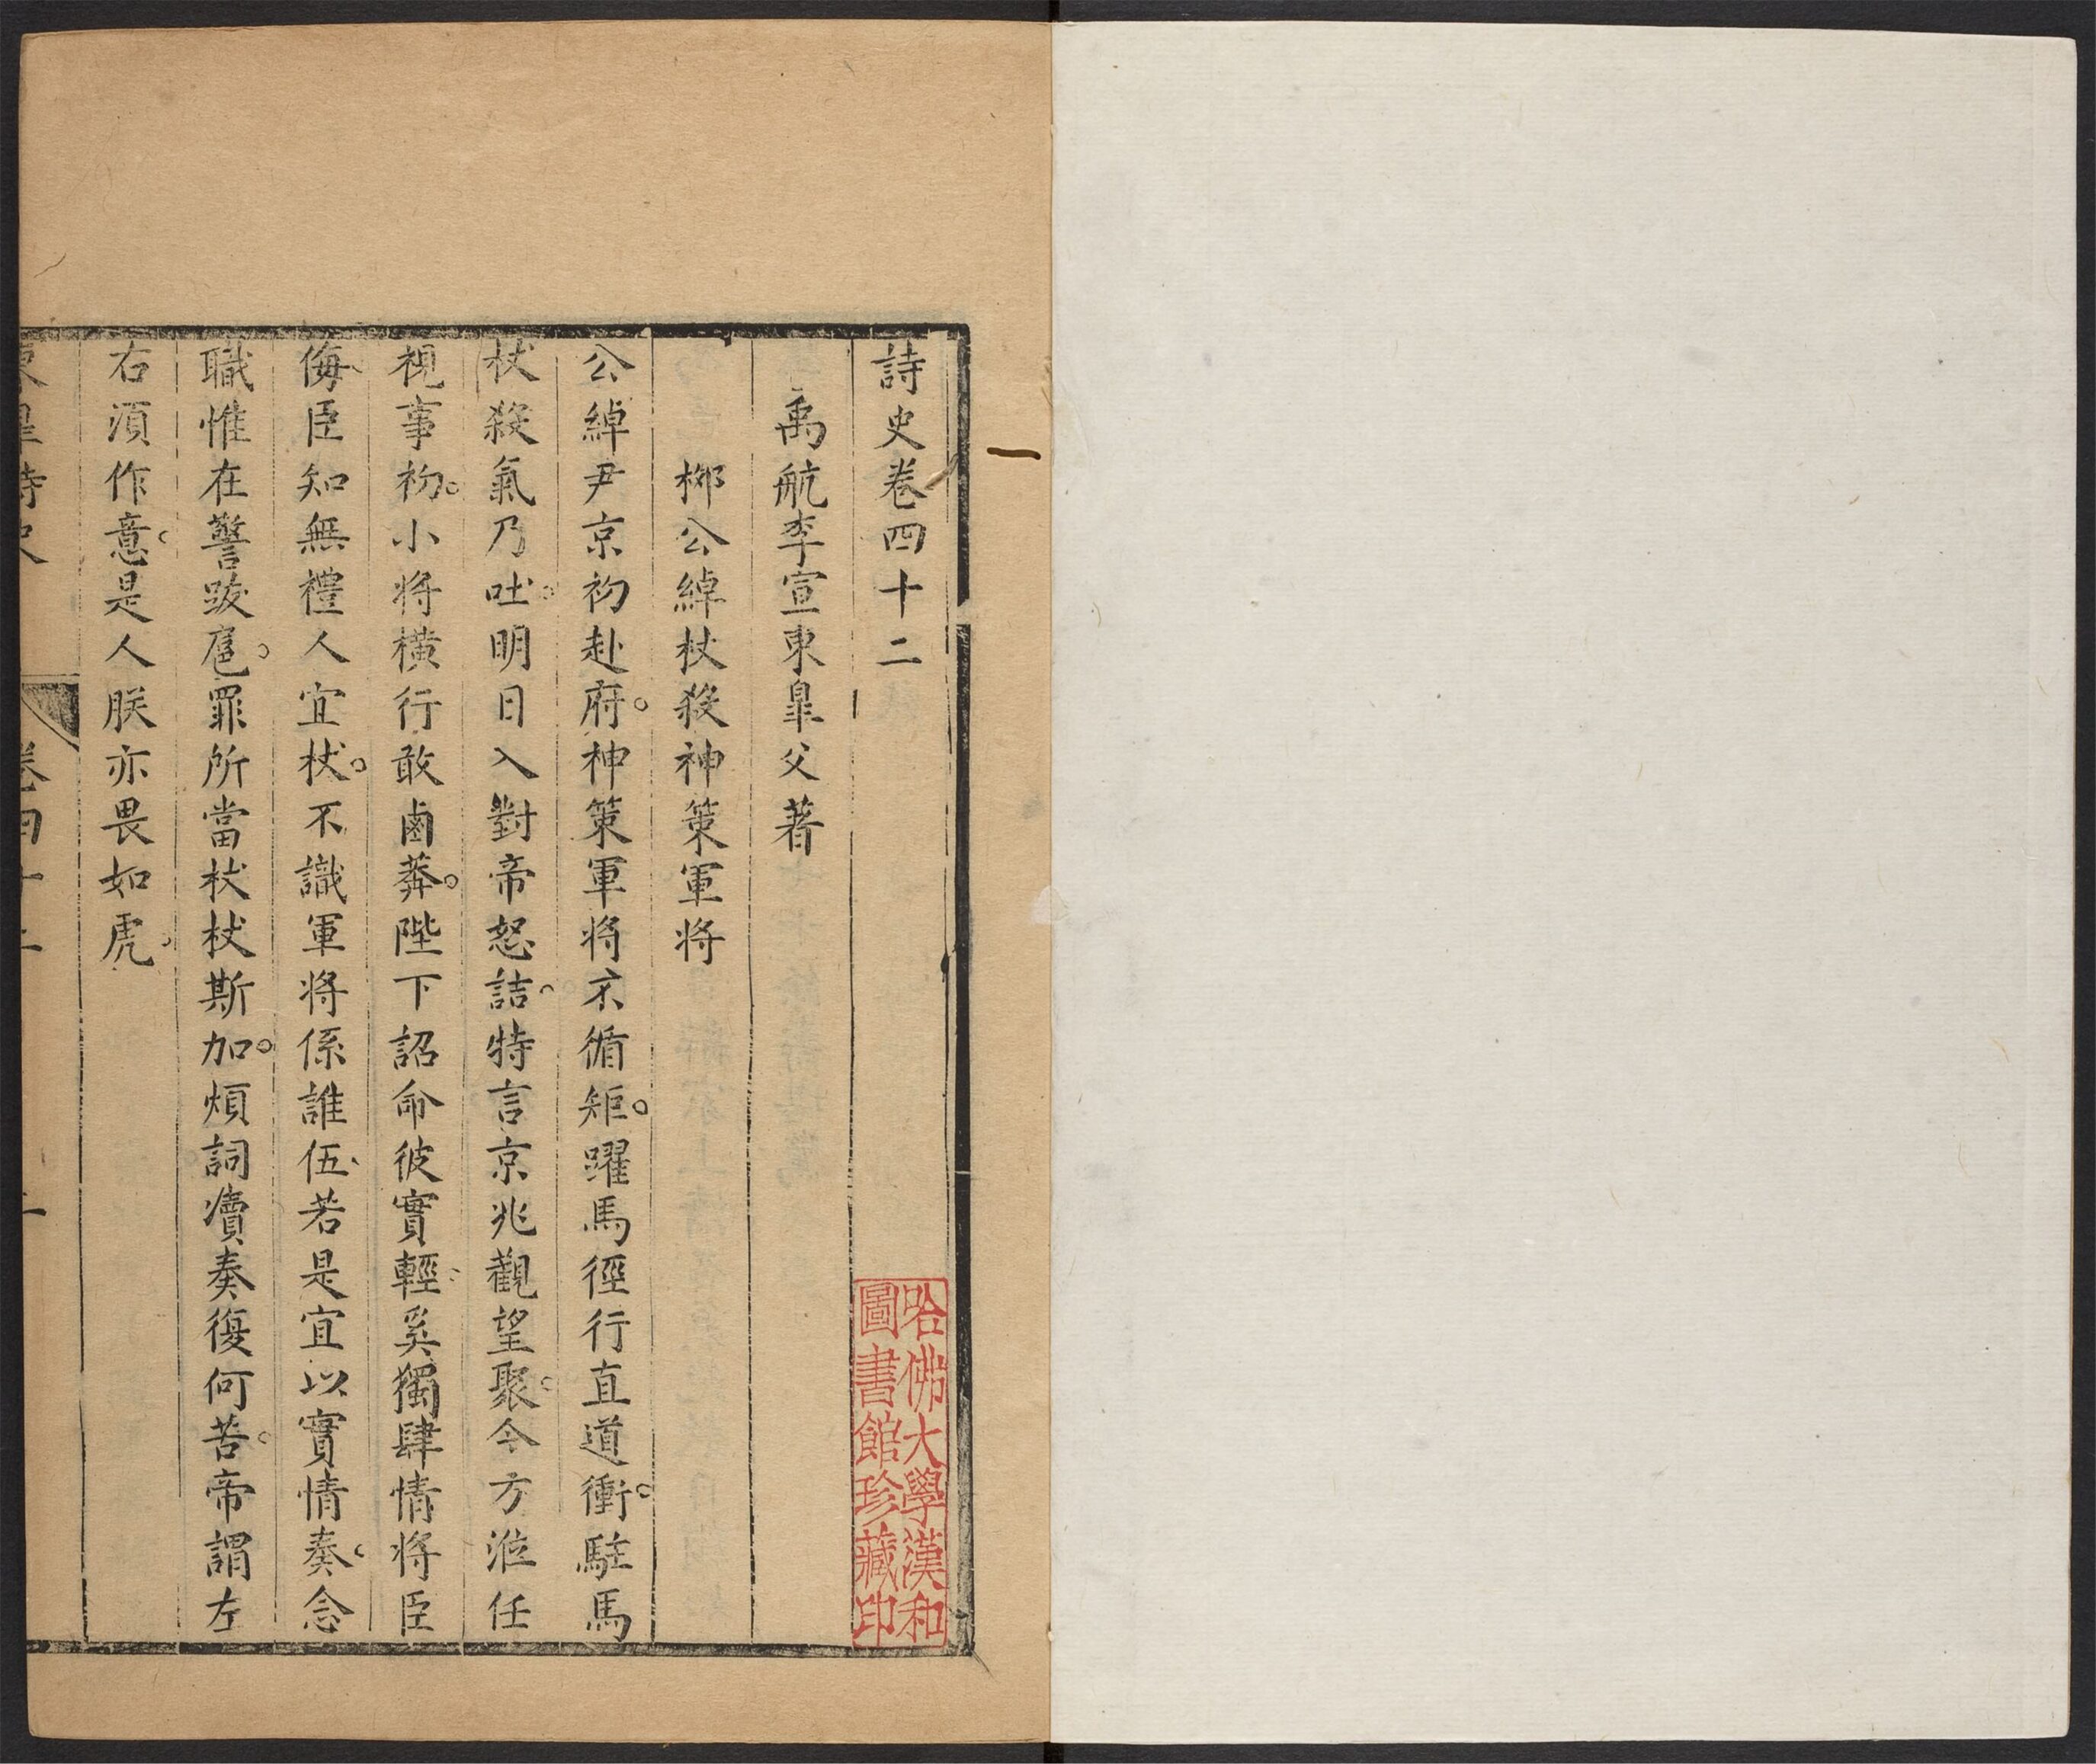 詩史卷四十二
禹航李宣東皐父著
栁公綽杖殺神策軍將
公綽尹京初赴府神策軍將不循矩躍馬徑行直道衝駐馬
杖殺氣乃吐明日入對帝怒詰特言京兆觀望聚今方涖任
視事初小將橫行敢鹵莽陛下詔命彼實輕奚獨肆情將臣
侮臣知無禮人宜杖不識軍將係誰伍若是宜以實情奏念
職惟在警跋扈罪所當杖杖斯加煩詞瀆奏復何苦帝謂左
右須作意是人朕亦畏如虎
卷四十二
哈佛大學漢和
圖書館珍藏印